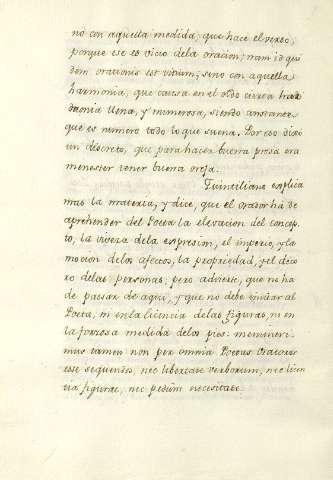 no con aquella medida, que hace el verso,
porque ese es vicio dela oracion; nam id qui
dem orationis est vitium; sino con aquella
harmonia, que causa en el oido cierta
llena, y numerosa, siendo constante
que es numero todo lo que suena. Por eso dixo
un discreto, que para hacer buena prosa era
menester tener buena oreja.
Quintiliano explica
mas la materia, y dice, que el Orador há de
aprehender del Poeta la elevacion del concep-
to, la viveza dela expresion, el imperio, y la
mocion delos afectos, la propriedad, y el deco
ro delas personas; pero advierte, que no ha
de pasar de aqui, y que no debe imitar al
Poeta, ni en la licencia delas figuras, ni en
la forzosa medida delos pies: memineri-
mus tamen non per omnia Poetas Oratori
esse sequendos, nec libertate verborum, nec licen
tia figurar, nec pedum necesitate.